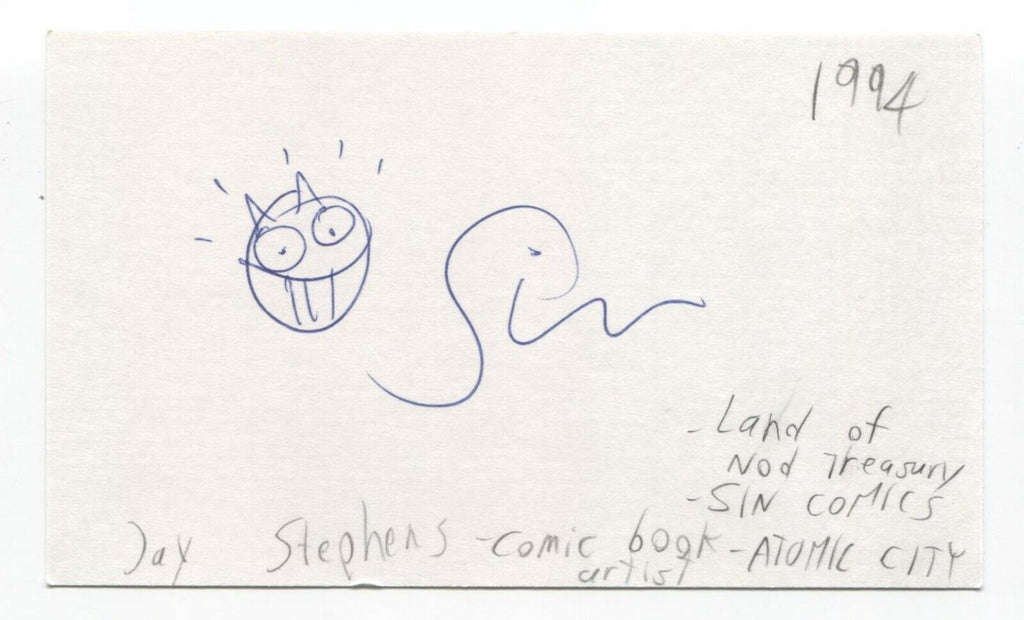 1994
Sin
- Land of
Nod Treasury
- SIN COMICS
Jay Stephens - comic book
artist
- ATOMIC CITY